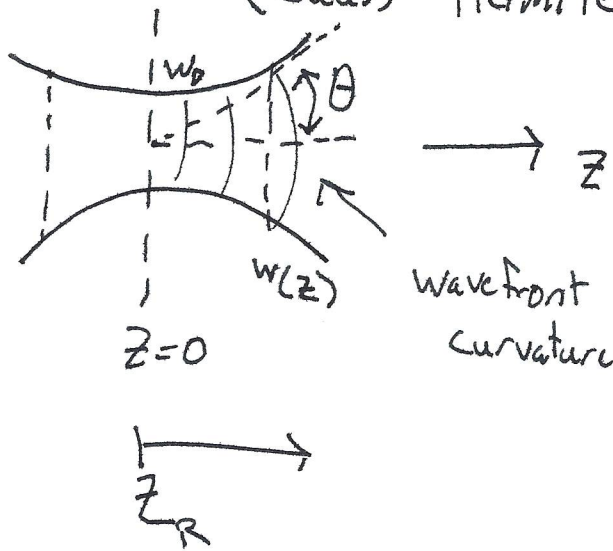 w₀
θ
z
w(z)
wavefront
curvature
z=0
z_R